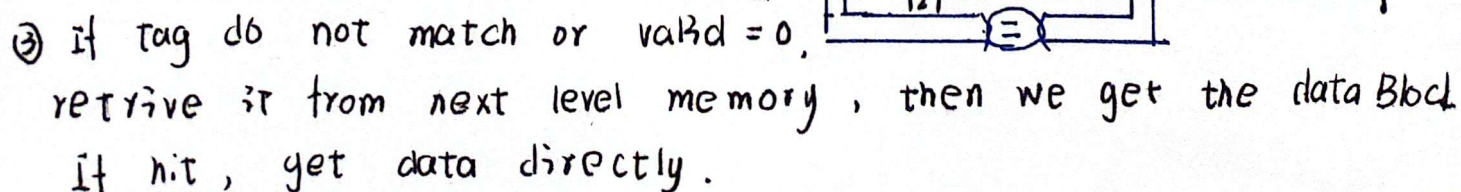 ③ If tag do not match or valid = 0,
retrive it from next level memory, then we get the data Block
If hit, get data directly.
=